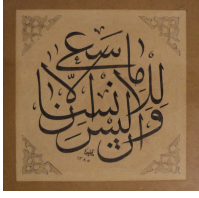 وان ليس للانسان الا ما سعى